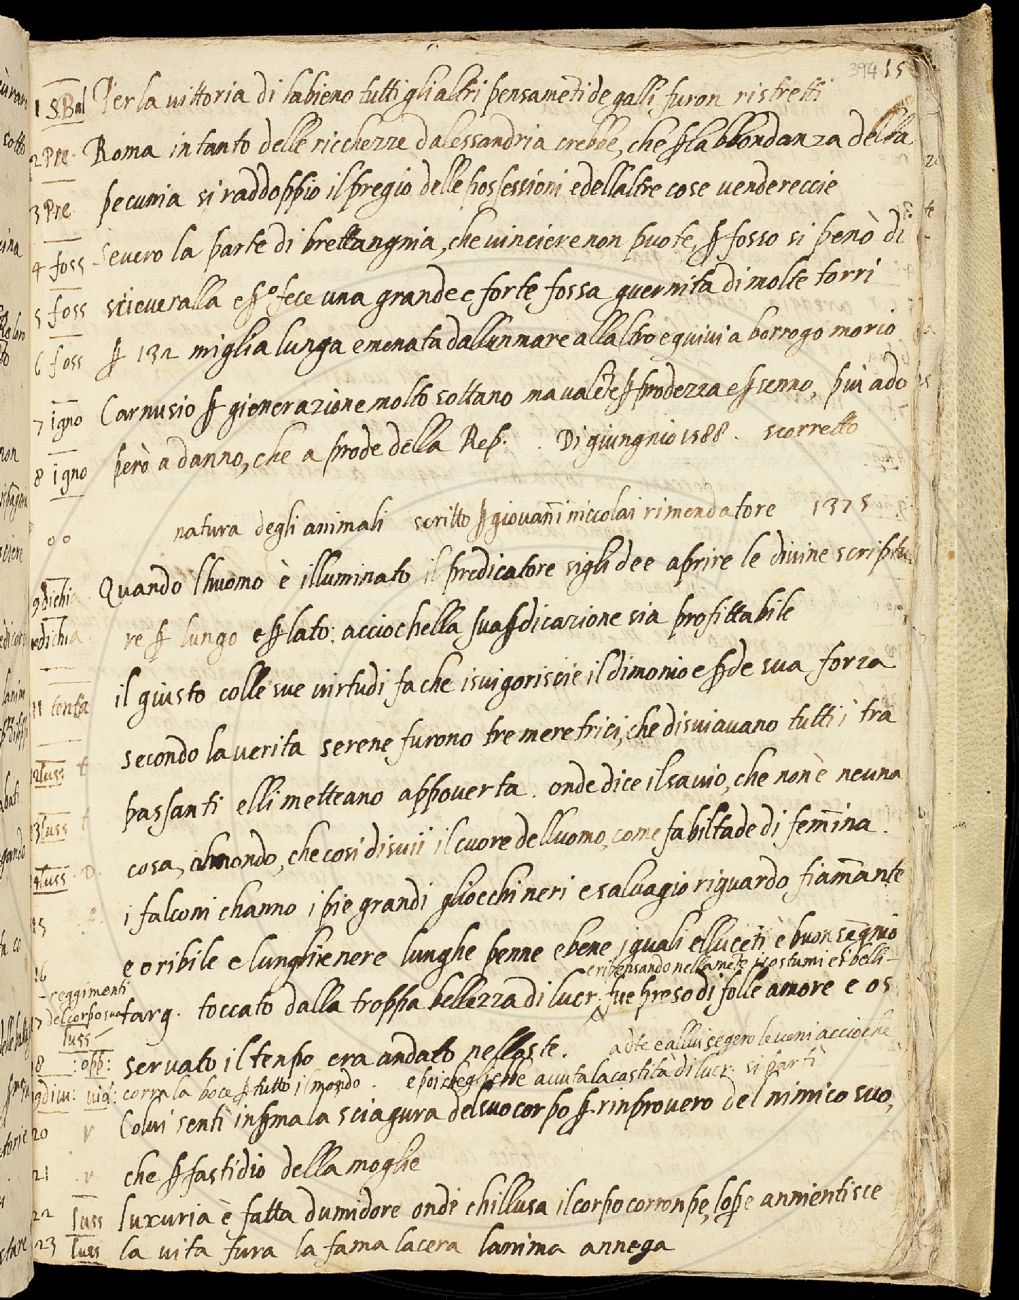 394 15
1 S.Bal Per la vittoria di labieno tutti gli altri pensameti de galli furon ristretti
2 Pre Roma in tanto delle ricchezze dalessandria crebbe, che ꝑ labbondanza della
3 Pre pecunia si raddoppio il pregio delle possessioni e dellaltre cose vendereccie
4 foss Severo la parte di brettangnia, che vinciere non puote, ꝑ fosso si penò di
5 foss scieveralla e ꝑo fece una grande e forte fossa guernita di molte torri
6 foss ꝑ 132 miglia lunga e menata dallun mare allaltro e quivi a borrogo morio
7 igno Carnusio ꝑ gienerazione molto sottano ma valẽte ꝑ prodezza e ꝑ senno, più ado
8 igno però a danno, che a prode della Rep. Di giungnio 1588. scorretto
oo natura degli animali scritto ꝑ giovañi niccolai rimendatore 1375
9 dichia Quando lhuomo è illuminato il predicatore sigli dee aprire le divine scriptu
10 dichia re ꝑ lungo e ꝑ lato: acciochella sua ꝑdicazione sia profittabile
11 tenta il giusto colle sue virtudi fa che isvigoriscie il dimonio e ꝑde sua forza
12 luss t secondo la verita serene furono tre meretrici, che disviavano tutti i tra
13 luss t passanti elli metteano appoverta. onde dice il savio, che non è neuna
14 luss D. cosa, al mondo, che cosi disvii il cuore delluomo, come fabiltade di femĩna.
15 i falconi channo i pie grandi gliocchi neri e salvagio riguardo fiamãnte
16 e oribile e lunghie nere lunghe penne e bene, i quali elluceti è buon sagnio
e ripensando nella mẽte i costumi e be belli-
17 reggimenti del corpo suo targ. toccato dalla troppa bellezza di lucr. fue preso di folle amore e os
luss
18 opp: servato il tenpo era andato nellaste. a dte e allui segero le voni accioche
19 divi: vid: corra la boce ꝑ tutto il mondo. e poi che gli ebbe avuta la castità di lucr: si partì
20 v Colui sentì infꝑma la sciagura del suo corpo ꝑ rinprovero del nimico suo,
21 v che ꝑ fastidio della moglie
22 luss luxuria è fatta dumidore onde chillusa il corpo corronpe, lope annientisce
23 luss la vita fura la fama lacera lanima annega